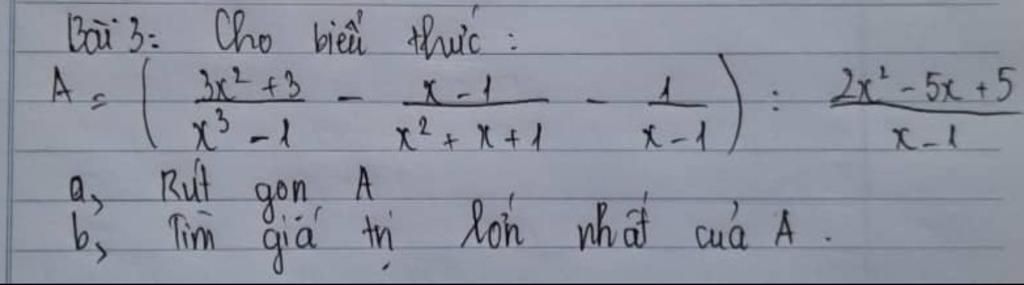 Bài 3: Cho biểu thức :
A = ( (3x² + 3)/(x³ - 1) - (x - 1)/(x² + x + 1) - 1/(x - 1) ) : (2x² - 5x + 5)/(x - 1)
a, Rút gọn A
b, Tìm giá trị lớn nhất của A .